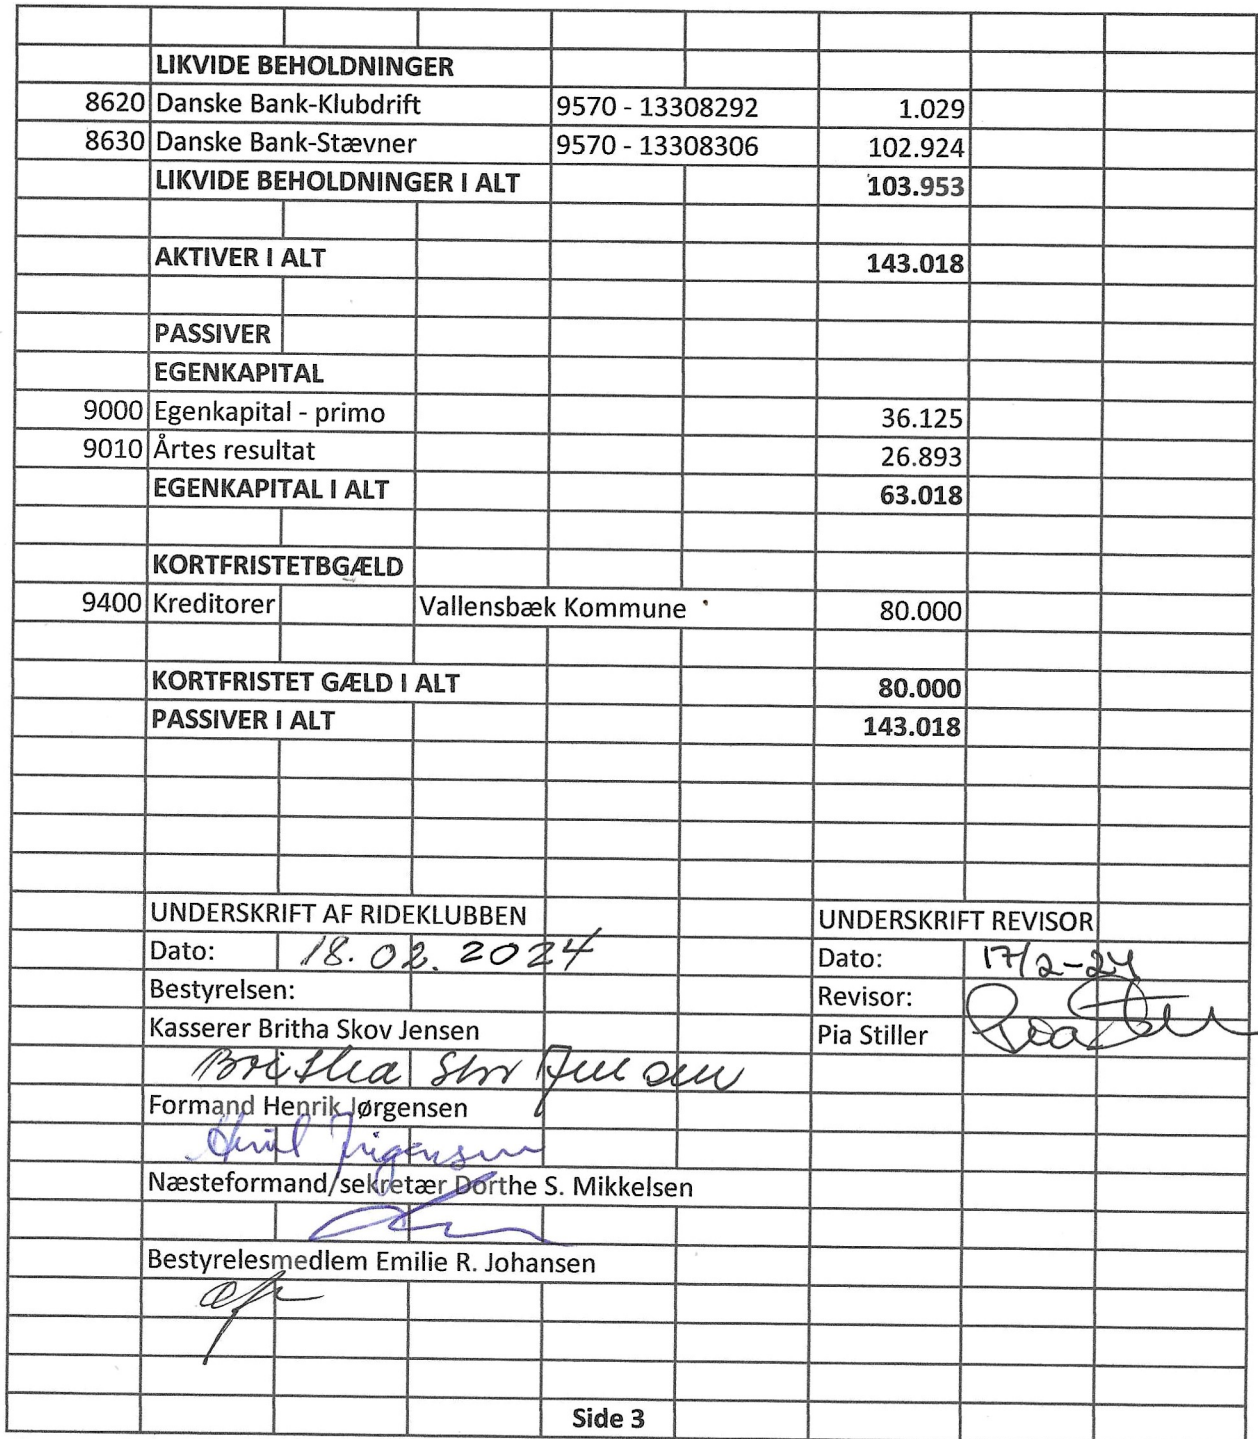 LIKVIDE BEHOLDNINGER
8620 Danske Bank-Klubdrift 9570 - 13308292 1.029
8630 Danske Bank-Stævner 9570 - 13308306 102.924
LIKVIDE BEHOLDNINGER I ALT 103.953
AKTIVER I ALT 143.018
PASSIVER
EGENKAPITAL
9000 Egenkapital - primo 36.125
9010 Årtes resultat 26.893
EGENKAPITAL I ALT 63.018
KORTFRISTETBGÆLD
9400 Kreditorer Vallensbæk Kommune 80.000
KORTFRISTET GÆLD I ALT 80.000
PASSIVER I ALT 143.018
UNDERSKRIFT AF RIDEKLUBBEN UNDERSKRIFT REVISOR
Dato: 18.02.2024 Dato: 17/2-24
Bestyrelsen: Revisor:
Kasserer Britha Skov Jensen Pia Stiller
Britha Skov Jensen
Formand Henrik Jørgensen
Henrik Jørgensen
Næsteformand/sekretær Dorthe S. Mikkelsen
Bestyrelesmedlem Emilie R. Johansen
Side 3